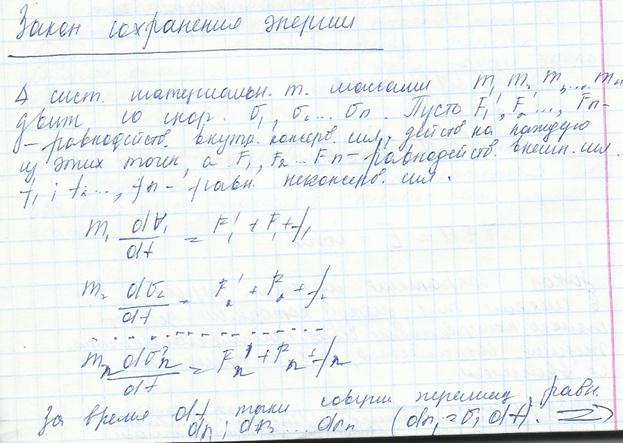 Закон сохранения энергии
Δ сист. материальн. т. массами m₁ m₂ m₃... mₙ
движ со скор. σ₁, σ₂... σn. Пусть F₁', F₂'..., Fn-
- равнодейств. внутр. консерв. сил, действ на каждую
из этих точек, а F₁, F₂... Fn - равнодейств. внешн. сил.
f₁; f₂..., fn - равн. неконсерв. сил.
m₁ dV₁/dt = F₁' + F₁ + f₁
m₂ dσ₂/dt = F₂' + F₂ + f₂
.................
mₙ dσn/dt = Fn' + Fn + fn
За время dt точки соверш перемещ, равн.
dr₁; dr₂... drn (dr₁ = σ₁ dt). =>